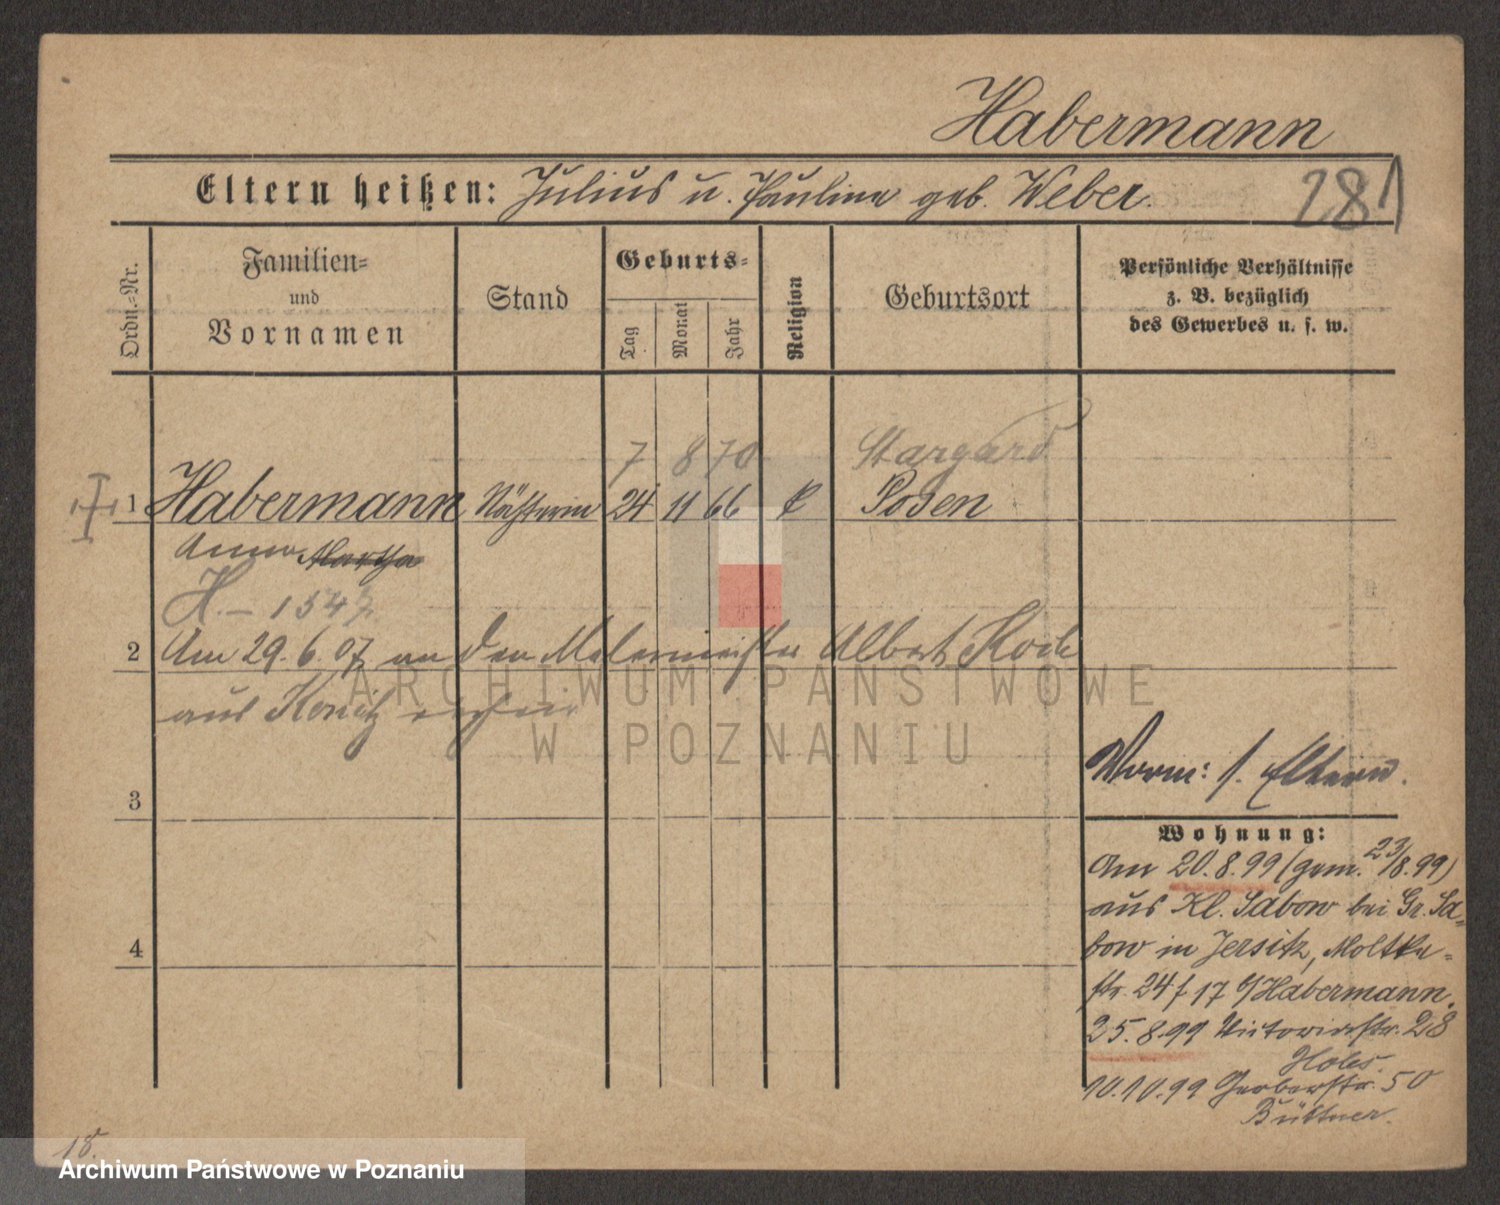 Habermann
Eltern heißen: Julius u. Pauline geb. Weber.
281
Ordn.-Nr.
Familien-
und
Vornamen
Stand
Geburts-
Tag
Monat
Jahr
Religion
Geburtsort
Persönliche Verhältnisse
z. B. bezüglich
des Gewerbes u. s. w.
7 8 70 Stargard
1 Habermann Nähterin 24 11 66 k Posen
Anna Martha
H. - 1547
2 Am 29.6.07 an den Malermeister Albert Koch
aus Konitz
3
4
Vorm: s. Eltern.
Wohnung:
Am 20.8.99 (gem. 23/8.99)
aus Kl. Sabow bei Gr. Sa-
bow in Jersitz, Moltke-
str. 24 f 17 b/Habermann.
25.8.99 Victoriastr. 28
10.10.99 Gerberstr. 50
Büttner.
18.
ARCHIWUM PAŃSTWOWE
W POZNANIU
Archiwum Państwowe w Poznaniu